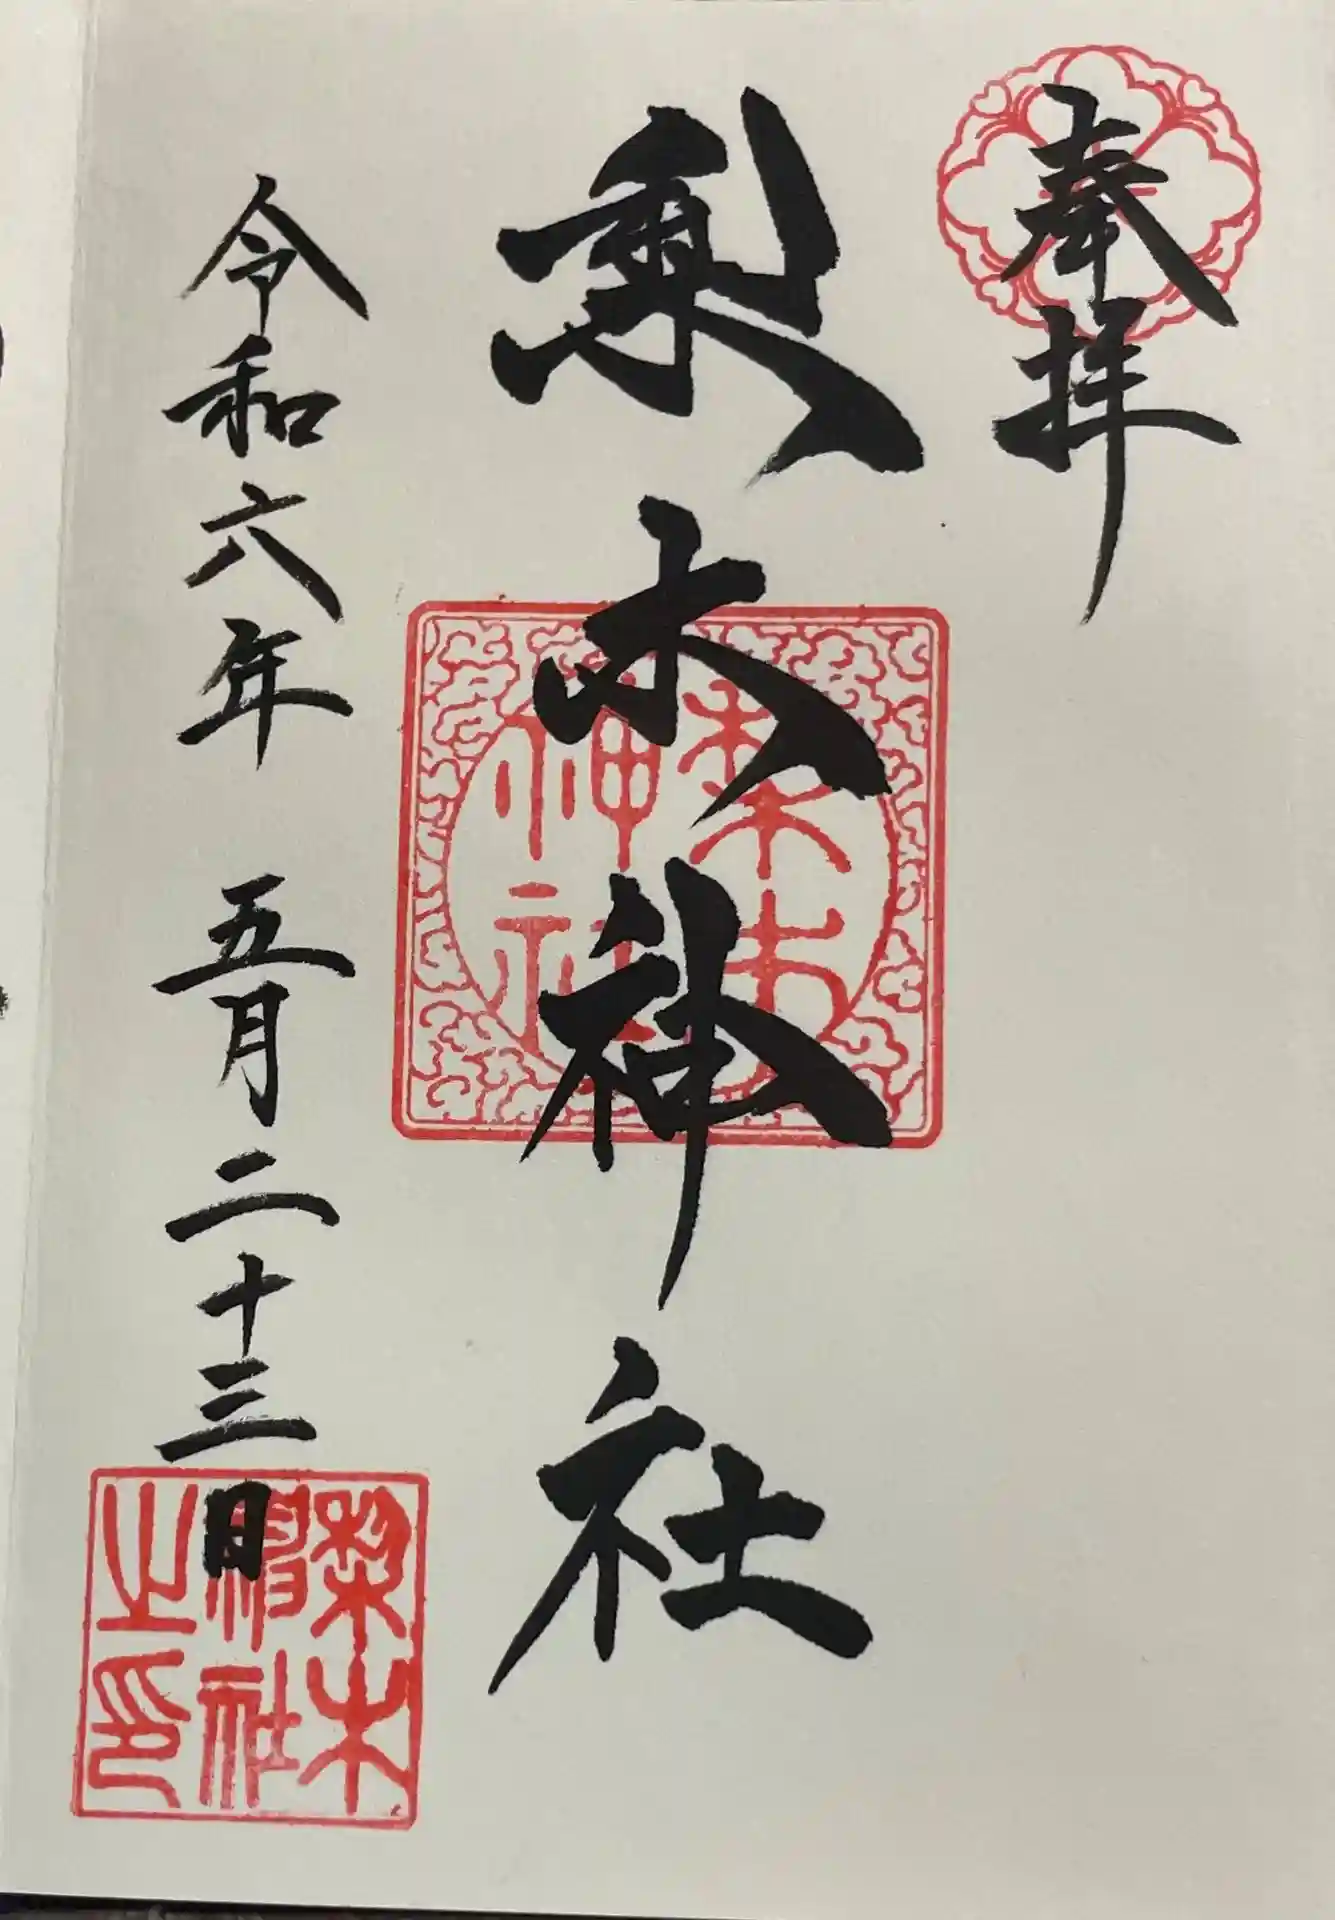 奉拝
梨木神社
梨木
神社
令和六年 五月二十三日
梨木
神社
之印